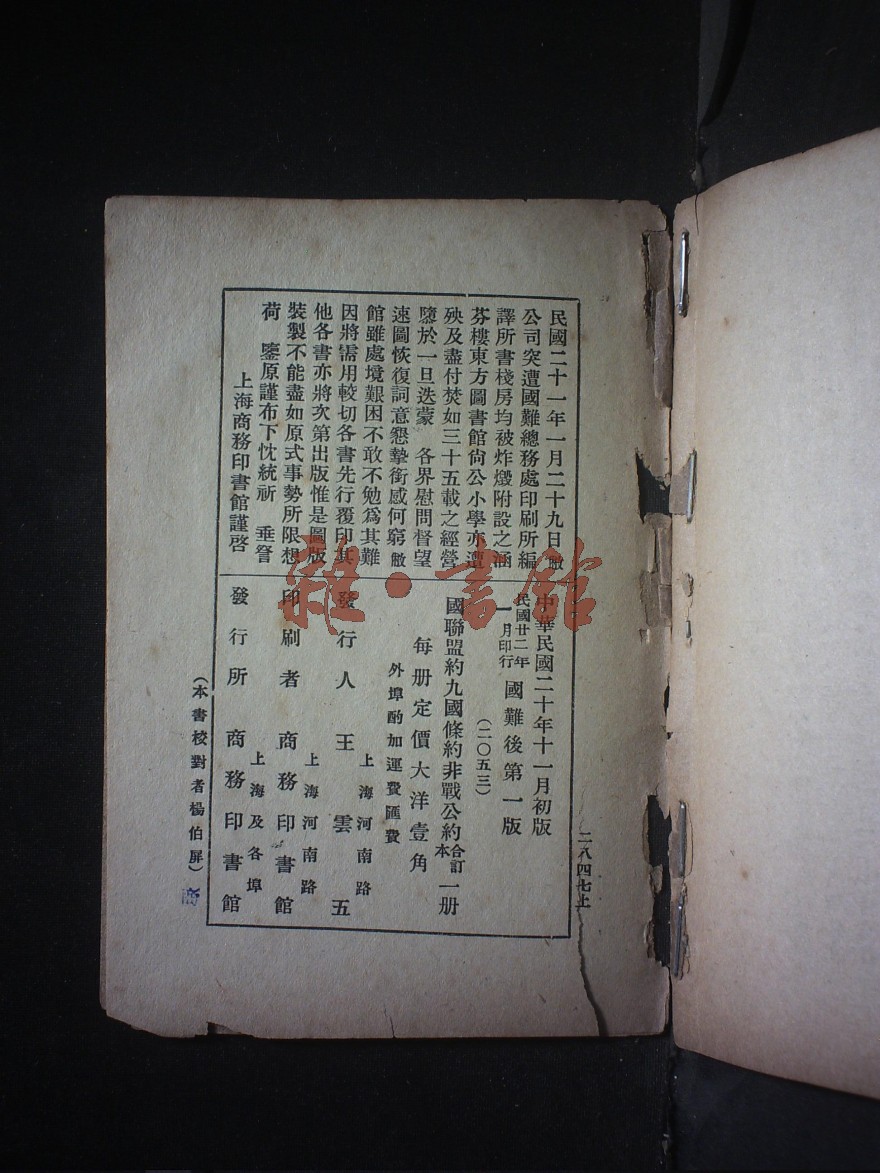 民國二十一年一月二十九日敝
公司突遭國難總務處印刷所編
譯所書棧房均被炸燬附設之涵
芬樓東方圖書館尙公小學亦遭
殃及盡付焚如三十五載之經營
隳於一旦迭蒙　各界慰問督望
速圖恢復詞意懇摯銜感何窮敝
館雖處境艱困不敢不勉爲其難
因將需用較切各書先行覆印其
他各書亦將次第出版惟是圖版
裝製不能盡如原式事勢所限想
荷　鑒原謹布下忱統祈　垂詧
上海商務印書館謹啓
二八四七上
中華民國二十年十一月初版
民國廿二年一月印行　國難後第一版
（二〇五三）
國聯盟約九國條約非戰公約合訂本一册
每册定價大洋壹角
外埠酌加運費匯費
上海河南路
發行人　王雲五
上海河南路
印刷者　商務印書館
上海及各埠
發行所　商務印書館
（本書校對者楊伯屏）
商
雜·書館